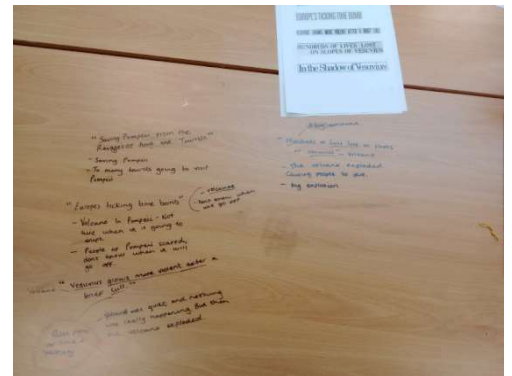 EUROPE'S TICKING TIME BOMB
VESUVIUS GROWS MORE VIOLENT AFTER A BRIEF LULL
HUNDREDS OF LIVES LOST
ON SLOPES OF VESUVIUS
In the Shadow of Vesuvius
"Saving Pompeii from the
and the Tourists"
- Saving Pompeii
- To many tourists going to visit
Pompeii
"Europes ticking time bomb"
- volcano
- dont know when
will go off
- Volcano in Pompeii - Not
Sure when it is going to
erupt
- People of Pompeii scared,
dont know when it will
go off.
" Vesuvius grows more violent after a
brief lull "
- Volcano was quiet and nothing
was really happening but then
the volcano exploded
"Hundreds of lives lost on slopes
of Vesuvius" - volcano
- the volcano exploded
causing people to die.
- big explosion